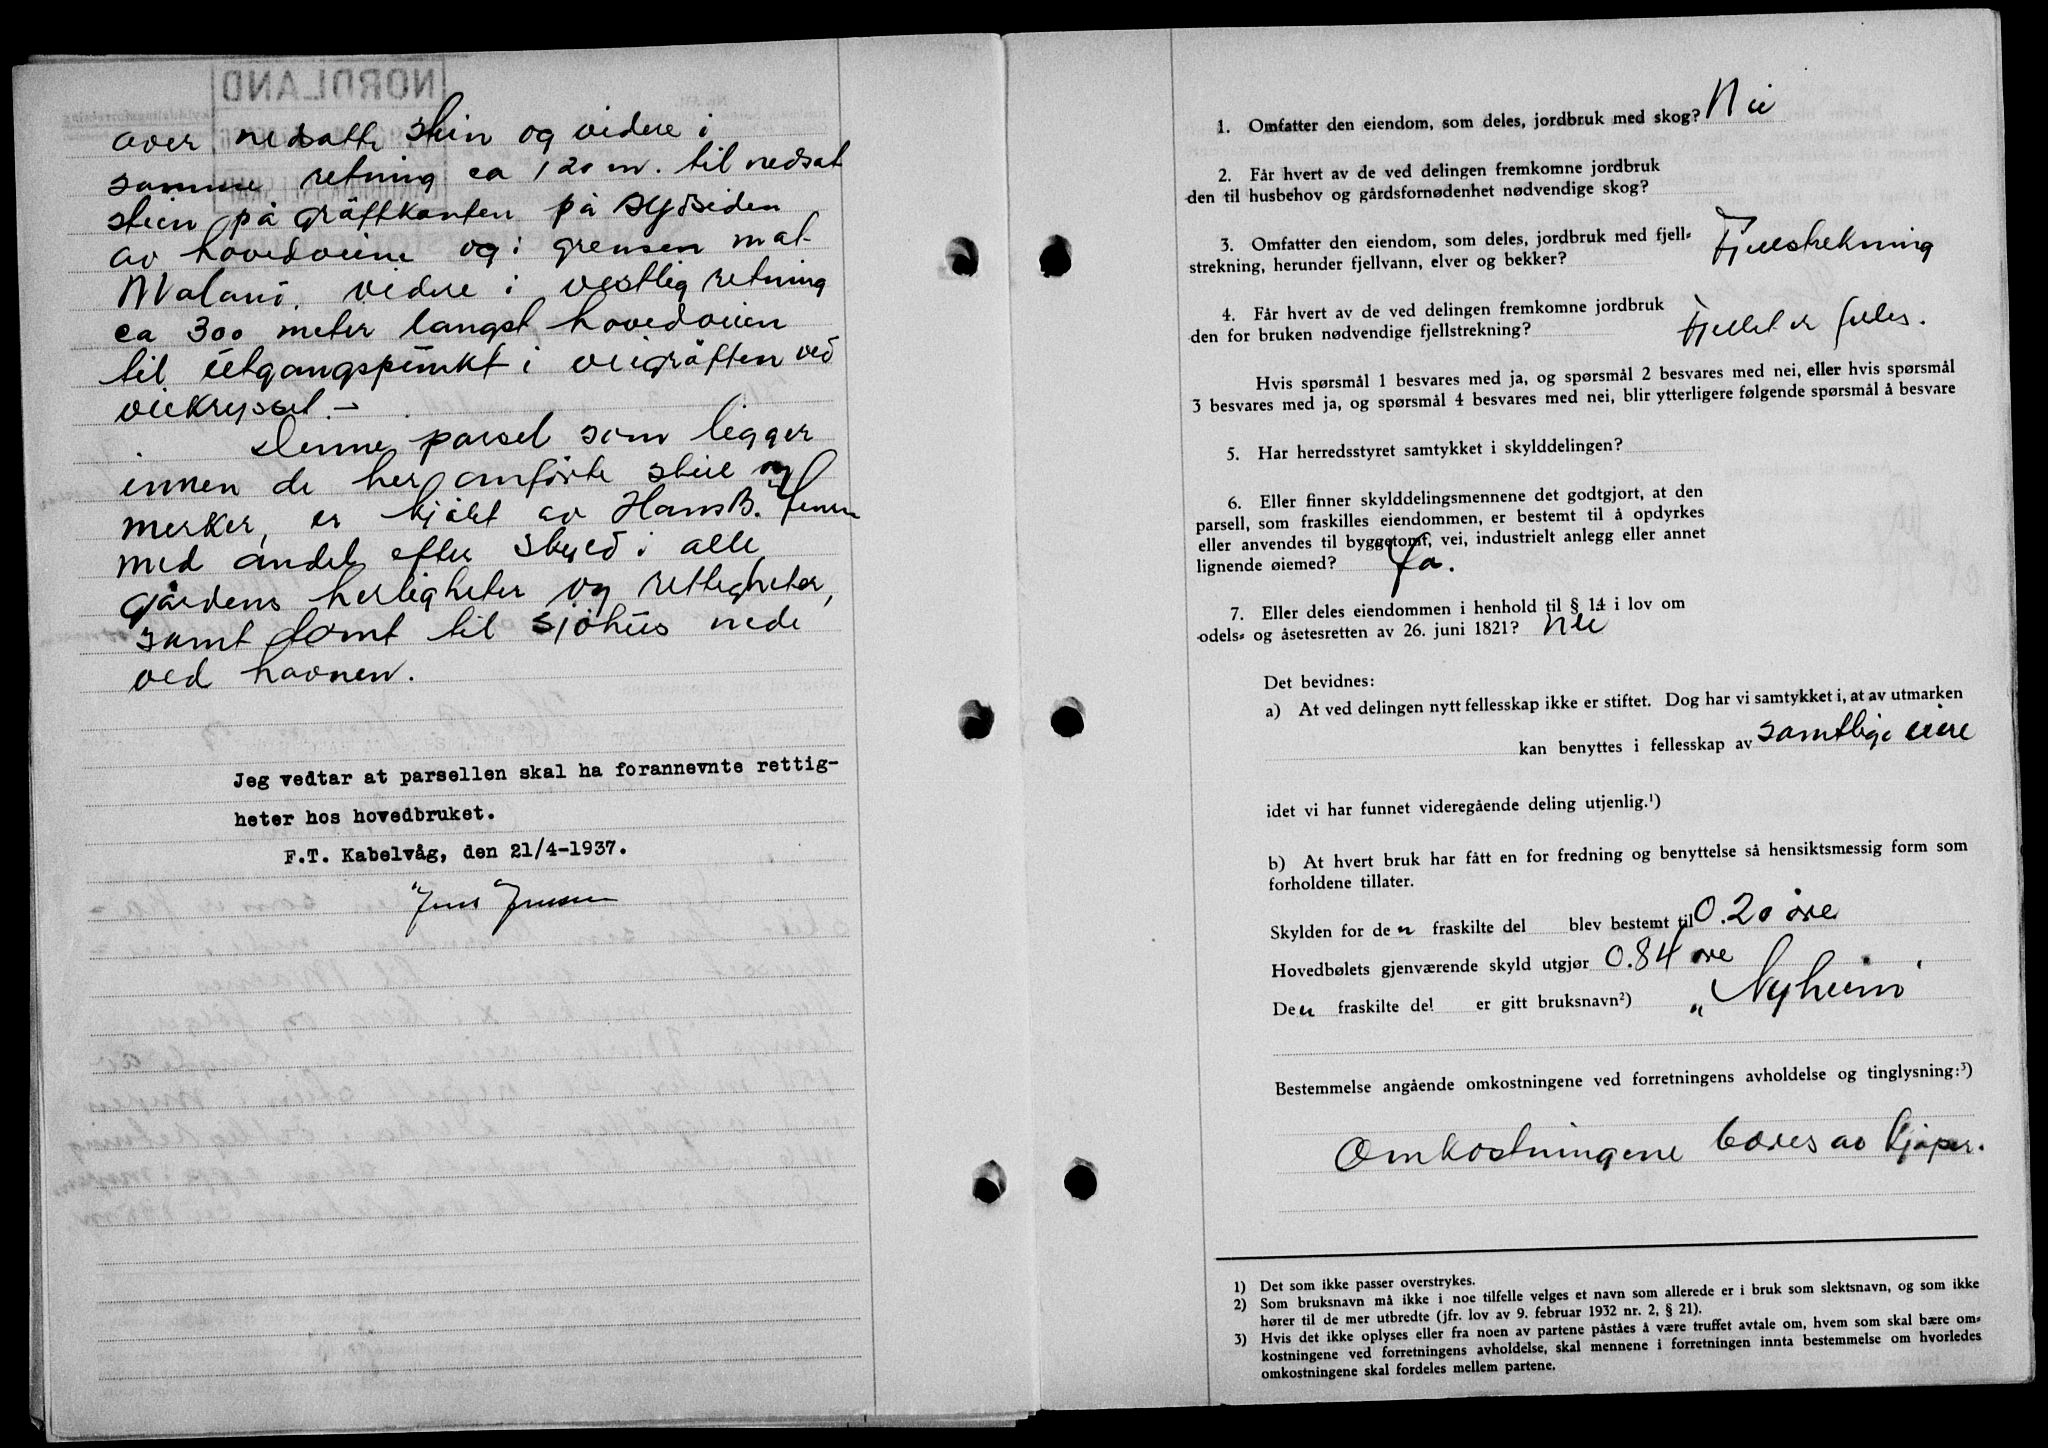 over nedsatte stein og videre i
samme retning ca 120 m. til nedsat
stein på gröftkanten på sydsiden
av hovedveiene og i grensen mot
videre i vestlig retning
ca 300 meter langst hovedveien
til utgangspunkt i veigröften ved
veikrysset.-
Denne parsel som ligger
innen de her anförte skiel og
merker, er kjöbt av Hans B. Jensen
med andel efter skyld i alle
gårdens herligheter og rettigheter,
samt tomt til sjöhus nede
ved havnen.
Jeg vedtar at parsellen skal ha forannevnte rettig-
heter hos hovedbruket.
F.T. Kabelvåg, den 21/4-1937.
Jens Jensen
1. Omfatter den eiendom, som deles, jordbruk med skog? Nei
2. Får hvert av de ved delingen fremkomne jordbruk
den til husbehov og gårdsfornødenhet nødvendige skog?
3. Omfatter den eiendom, som deles, jordbruk med fjell-
strekning, herunder fjellvann, elver og bekker? Fjellstrekning
4. Får hvert av de ved delingen fremkomne jordbruk
den for bruken nødvendige fjellstrekning? Fjellet er felles.
Hvis spørsmål 1 besvares med ja, og spørsmål 2 besvares med nei, eller hvis spørsmål
3 besvares med ja, og spørsmål 4 besvares med nei, blir ytterligere følgende spørsmål å besvare
5. Har herredsstyret samtykket i skylddelingen?
6. Eller finner skylddelingsmennene det godtgjort, at den
parsell, som fraskilles eiendommen, er bestemt til å opdyrkes
eller anvendes til byggetomt, vei, industrielt anlegg eller annet
lignende øiemed? Ja.
7. Eller deles eiendommen i henhold til § 14 i lov om
odels- og åsetesretten av 26. juni 1821? Nei
Det bevidnes:
a) At ved delingen nytt fellesskap ikke er stiftet. Dog har vi samtykket i, at av utmarken
kan benyttes i fellesskap av samtlige eiere
idet vi har funnet videregående deling utjenlig.¹)
b) At hvert bruk har fått en for fredning og benyttelse så hensiktsmessig form som
forholdene tillater.
Skylden for den fraskilte del blev bestemt til 0.20 øre
Hovedbølets gjenværende skyld utgjør 0.84 øre
Den fraskilte del er gitt bruksnavn²) „Nyheim"
Bestemmelse angående omkostningene ved forretningens avholdelse og tinglysning:³)
Omkostningene bæres av kjøper.
1) Det som ikke passer overstrykes.
2) Som bruksnavn må ikke i noe tilfelle velges et navn som allerede er i bruk som slektsnavn, og som ikke
hører til de mer utbredte (jfr. lov av 9. februar 1932 nr. 2, § 21).
3) Hvis det ikke oplyses eller fra noen av partene påståes å være truffet avtale om, hvem som skal bære om-
kostningene ved forretningens avholdelse, skal mennene i forretningen innta bestemmelse om hvorledes
omkostningene skal fordeles mellem partene.